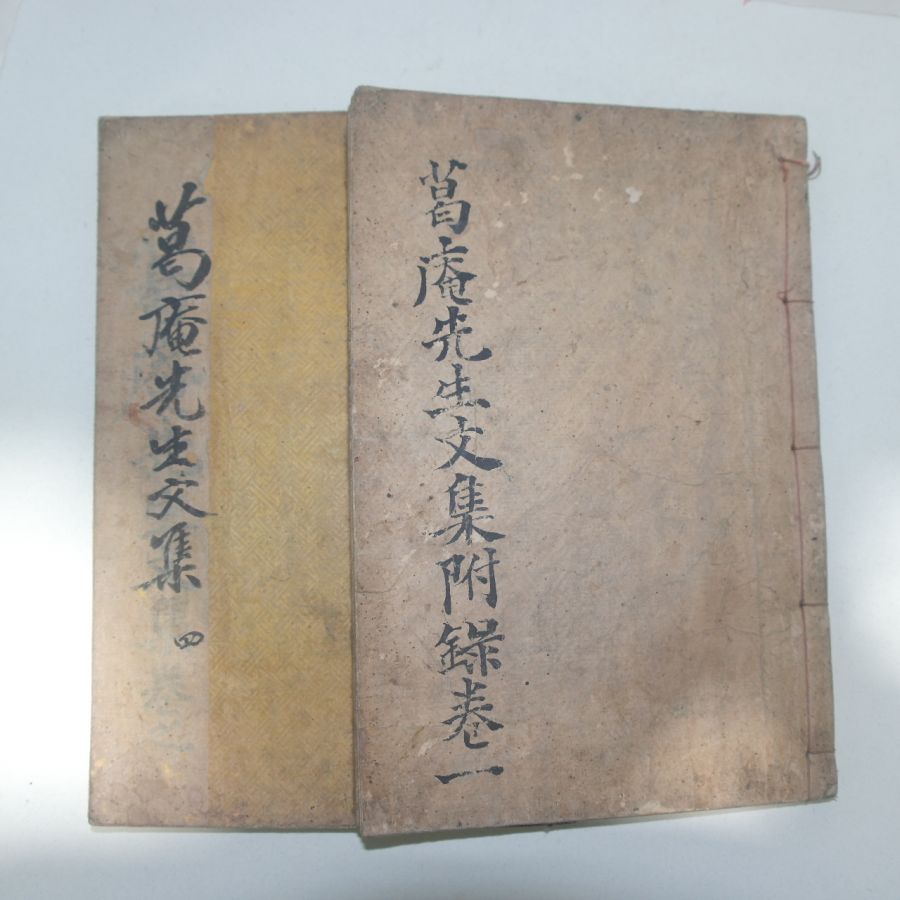 葛庵先生文集 四
葛庵先生文集附錄卷一